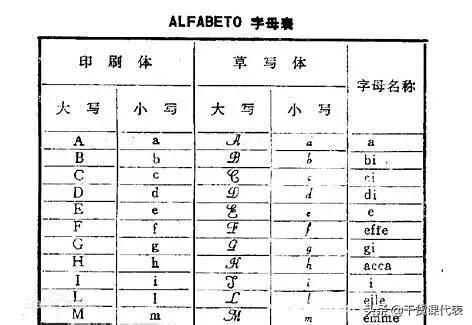 ALFABETO 字母表
印刷体 草写体 字母名称
大写 小写 大写 小写
A a A a a
B b B b bi
C c C c ci
D d D d di
E e E e e
F f F f effe
G g G g gi
H h H h acca
I i I i i
L l L l elle
M m M m emme
头条 @干货课代表